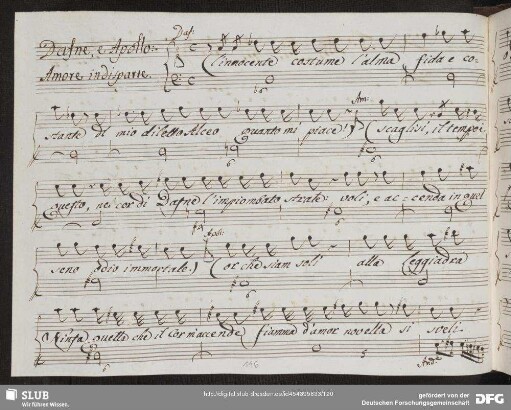 Dafne, e Apollo.
Amore in disparte.
Daf:
(L'innocente costume l'alma fida e co-
stante di mio diletto Alceo quanto mi piace!) Am: (scaglisi, il tempo è
questo, nel cor di Dafne l'impiombato strale voli, e accenda in quel
seno odio immortale.) Apoll: (or che siam soli alla leggiadra
Ninfa quella che il cor m'accende fiamma d'amor novella si sveli.
And:
116
SLUB
Wir führen Wissen.
gefördert von der
Deutschen Forschungsgemeinschaft
DFG